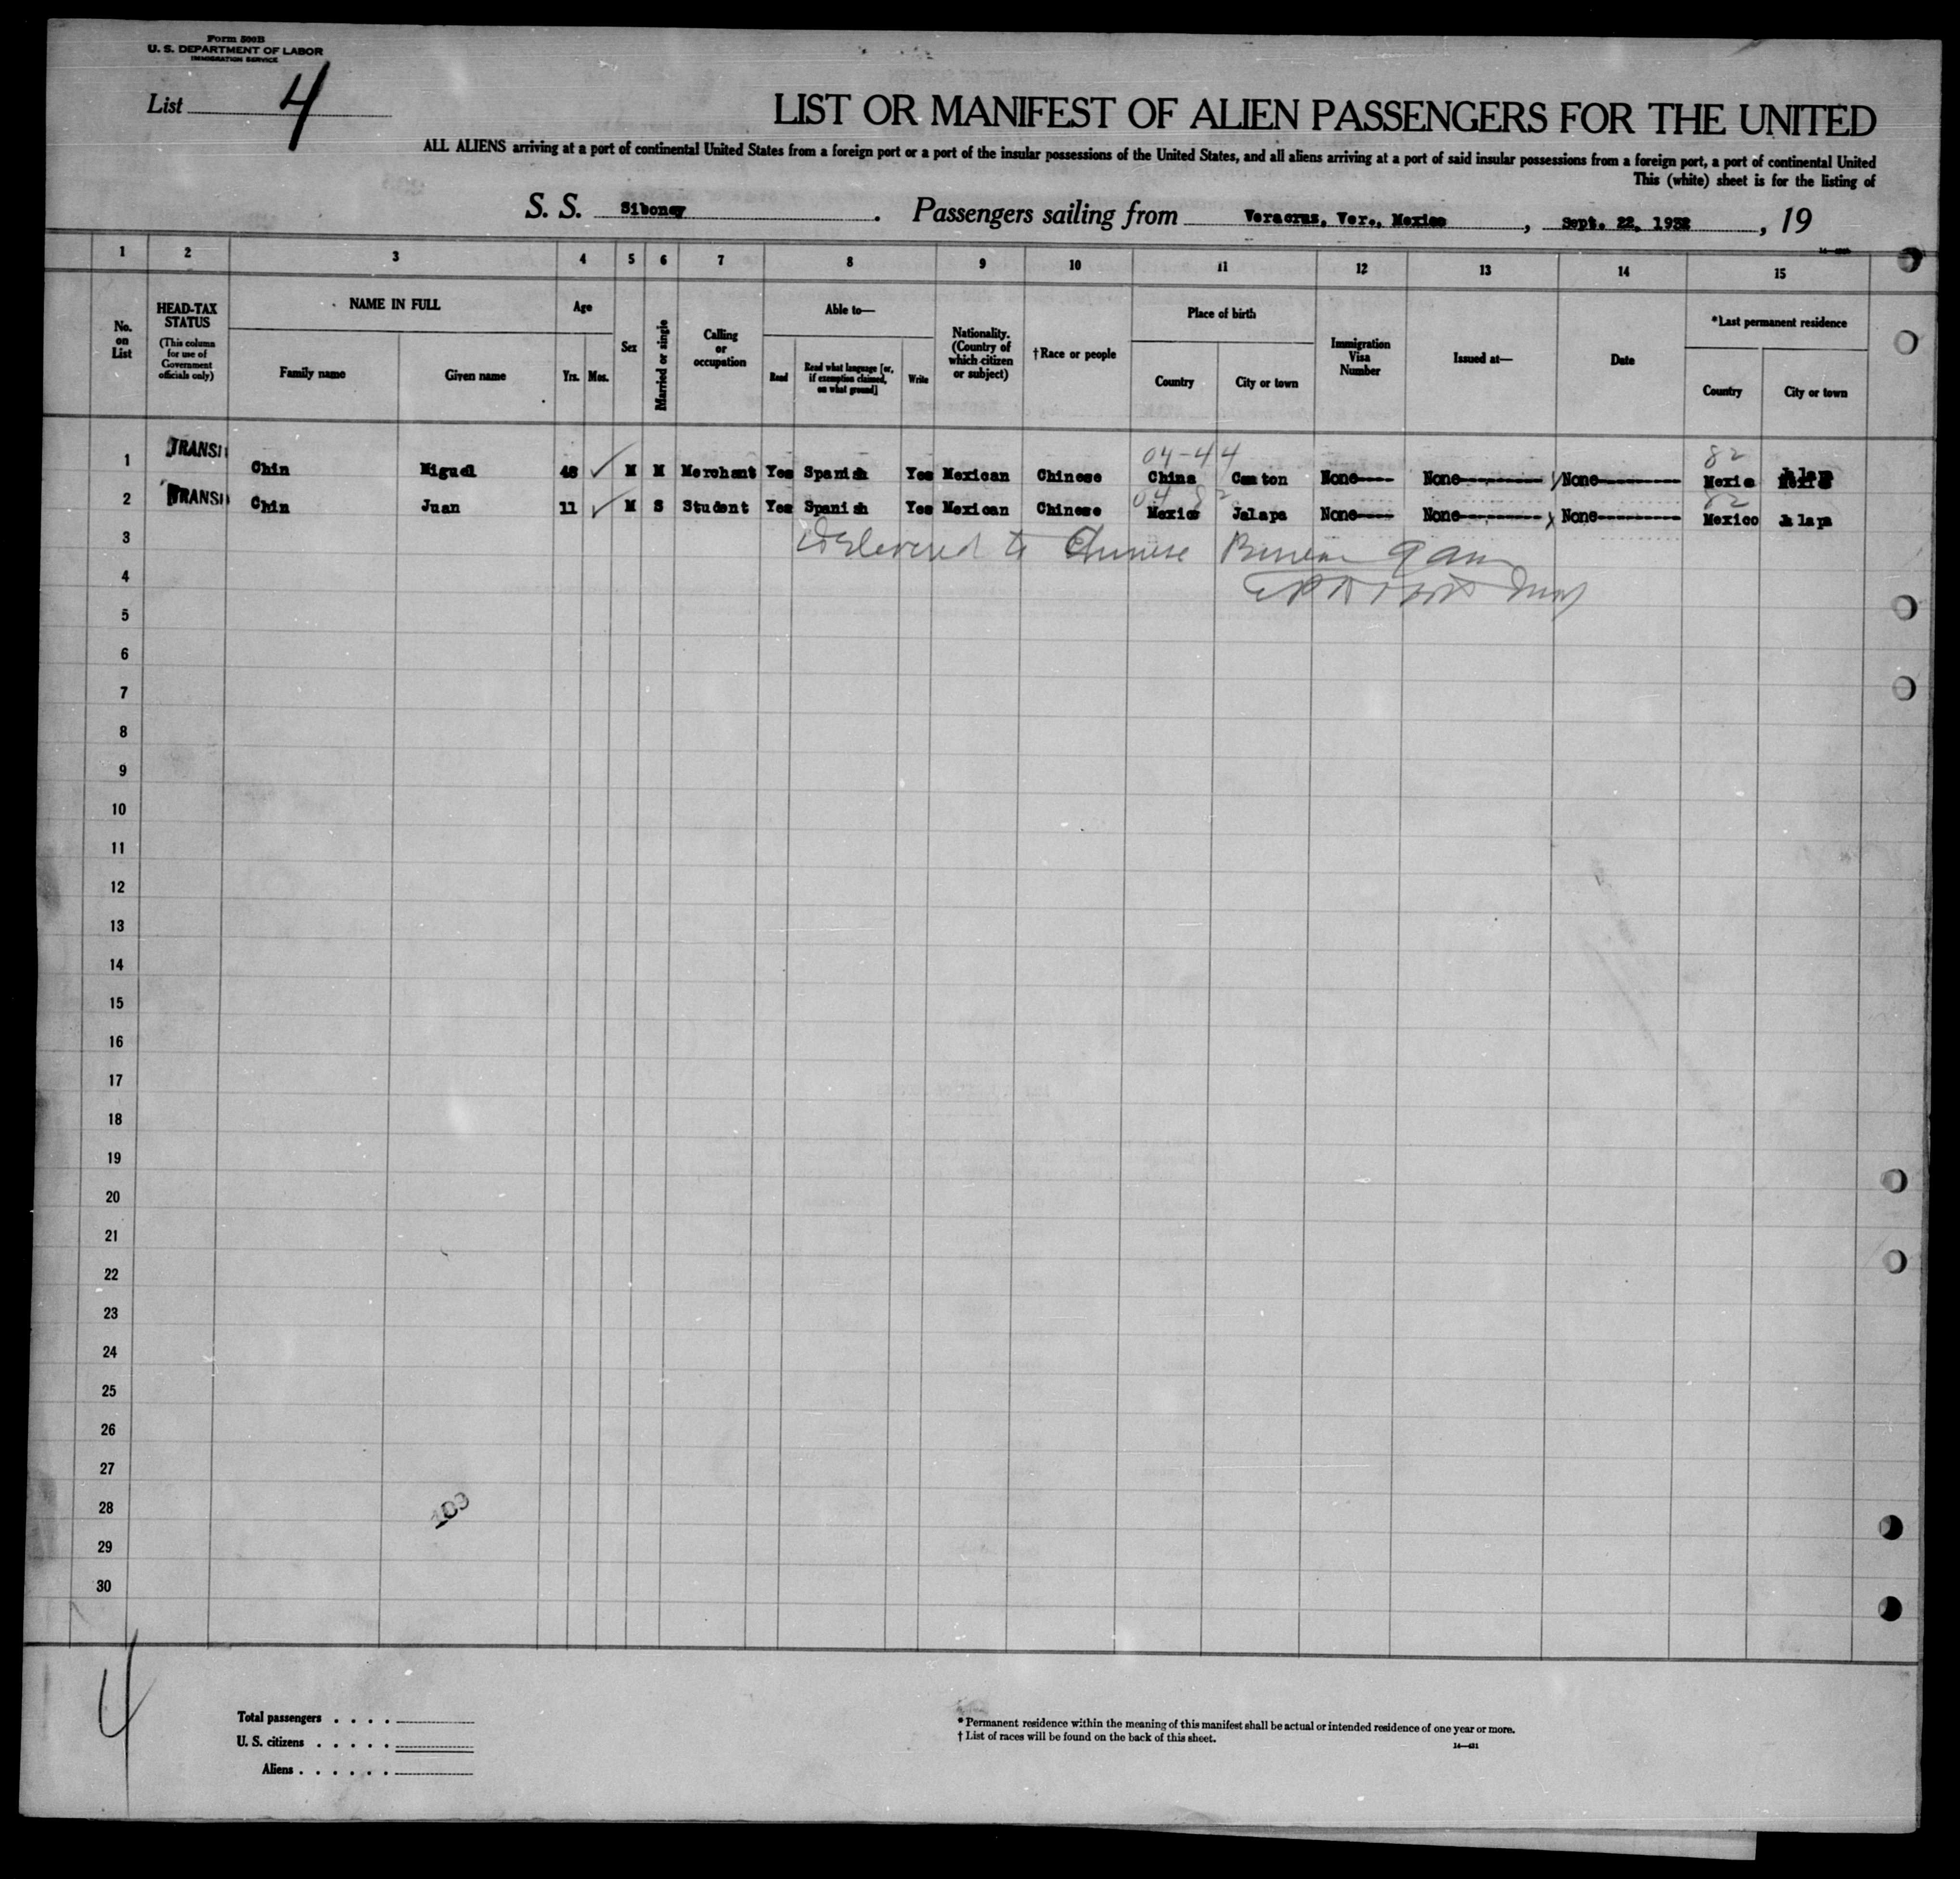 Form 500B
U. S. DEPARTMENT OF LABOR
IMMIGRATION SERVICE
List 4
LIST OR MANIFEST OF ALIEN PASSENGERS FOR THE UNITED
ALL ALIENS arriving at a port of continental United States from a foreign port or a port of the insular possessions of the United States, and all aliens arriving at a port of said insular possessions from a foreign port, a port of continental United
This (white) sheet is for the listing of
S. S. Siboney . Passengers sailing from Veracruz, Ver., Mexico , Sept. 22, 1932 , 19
1 2 3 4 5 6 7 8 9 10 11 12 13 14 15
No. on List
HEAD-TAX STATUS (This column for use of Government officials only)
NAME IN FULL
Family name
Given name
Age
Yrs. Mos.
Sex
Married or single
Calling or occupation
Able to—
Read
Read what language [or, if exemption claimed, on what ground]
Write
Nationality. (Country of which citizen or subject)
†Race or people
Place of birth
Country
City or town
Immigration Visa Number
Issued at—
Date
*Last permanent residence
Country
City or town
04-44 82
1 TRANSI Chin Miguel 48 M M Merchant Yes Spanish Yes Mexican Chinese China Canton None---- None---------- None---------- Mexic Jalap
04 82 82
2 TRANSI Chin Juan 11 M S Student Yes Spanish Yes Mexican Chinese Mexico Jalapa None---- None---------- None---------- Mexico Jalapa
3 Delivered to Chinese Bureau 9 am
4
5
6
7
8
9
10
11
12
13
14
15
16
17
18
19
20
21
22
23
24
25
26
27
28 103
29
30
4
Total passengers . . . .
U. S. citizens . . . . .
Aliens . . . . . .
* Permanent residence within the meaning of this manifest shall be actual or intended residence of one year or more.
† List of races will be found on the back of this sheet.
14—431